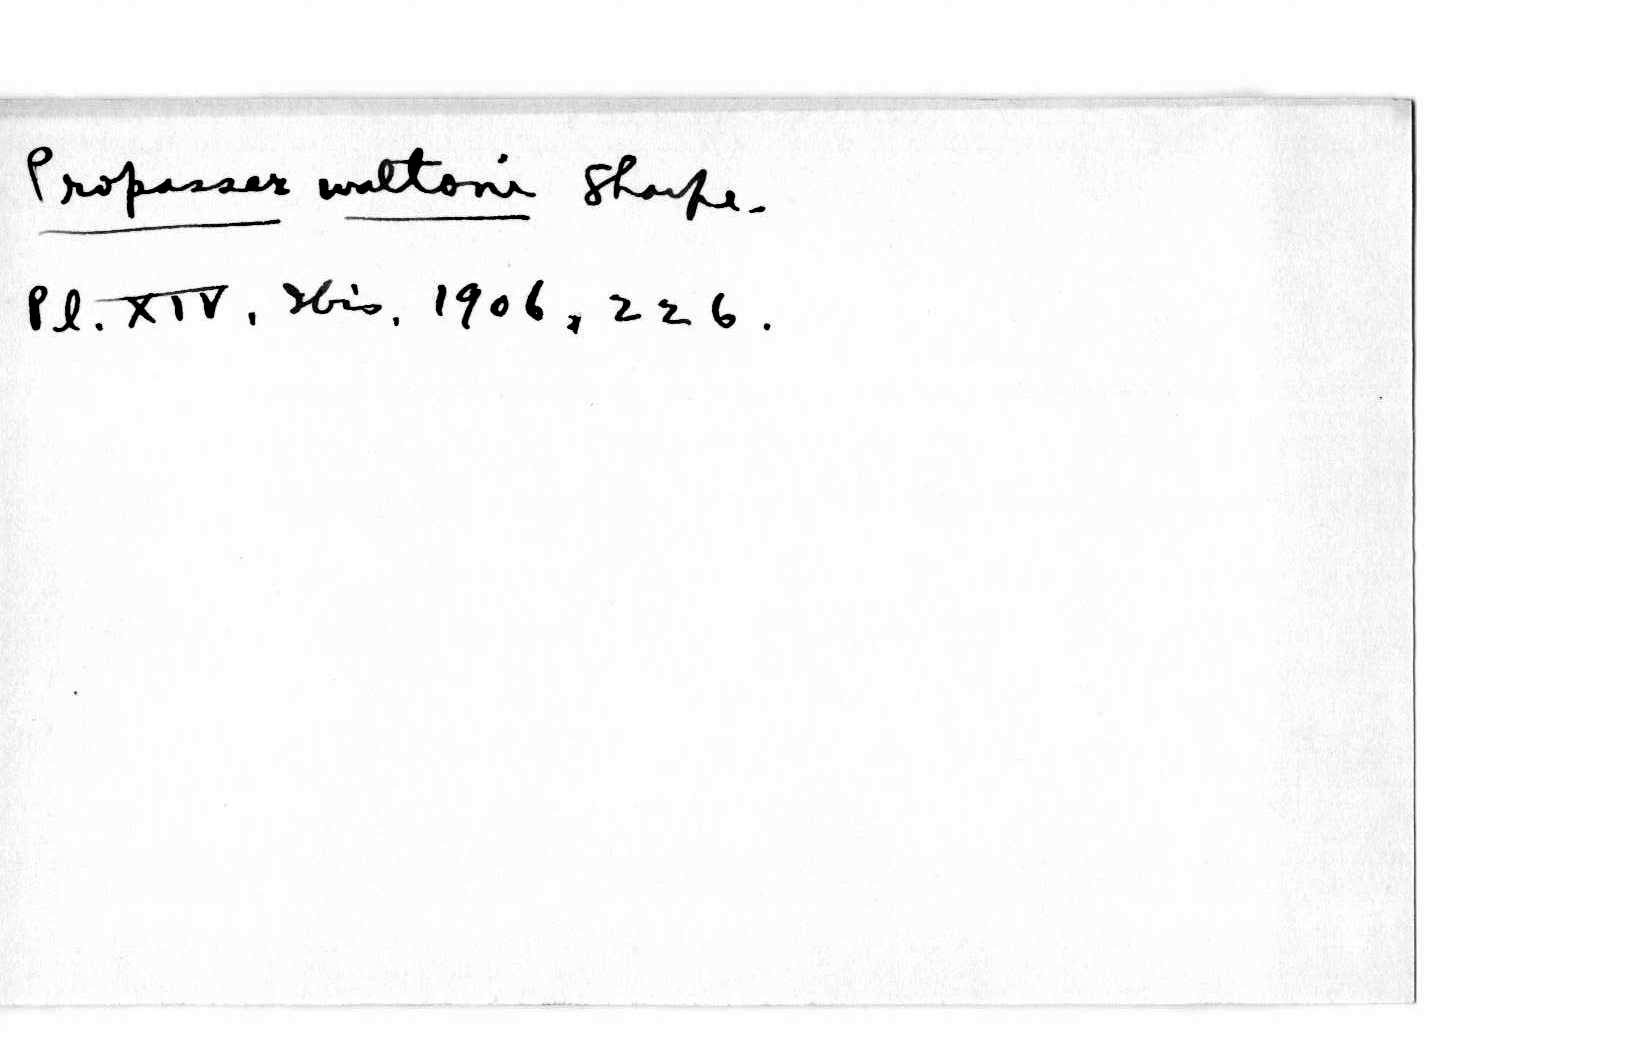 Propasser waltoni Sharpe.
Pl. XIV, Ibis, 1906, 226.